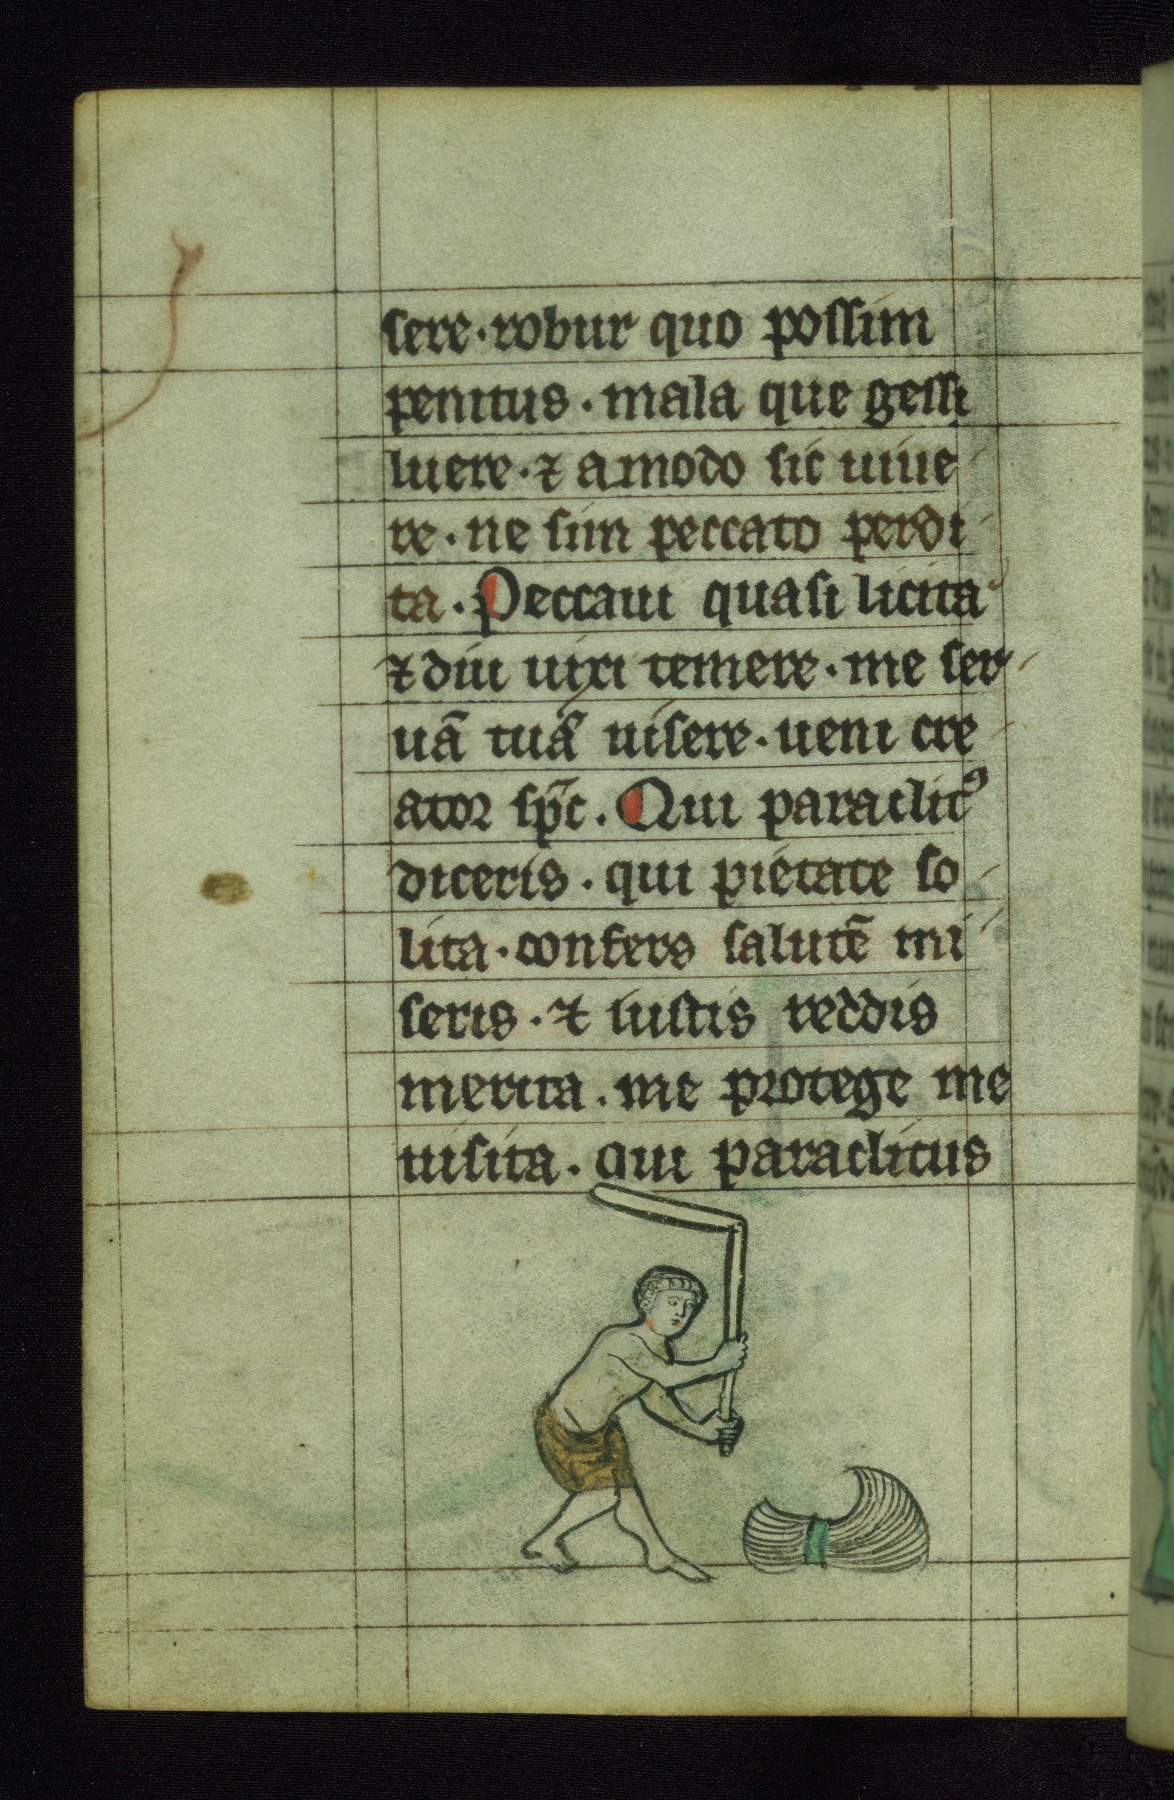 sere · robur quo possim
penitus · mala que gessi
luere · ⁊ amodo sic uiue
re · ne sim peccato perdi
ta · Peccaui quasi licita
⁊ diu uixi temere · me ser
uā tuā uisere · ueni cre
ator sp̄c · Qui paraclitꝰ
diceris · qui pietate so
lita · confers salutē mi
seris · ⁊ iustis reddis
merita · me protege me
uisita · qui paraclitus